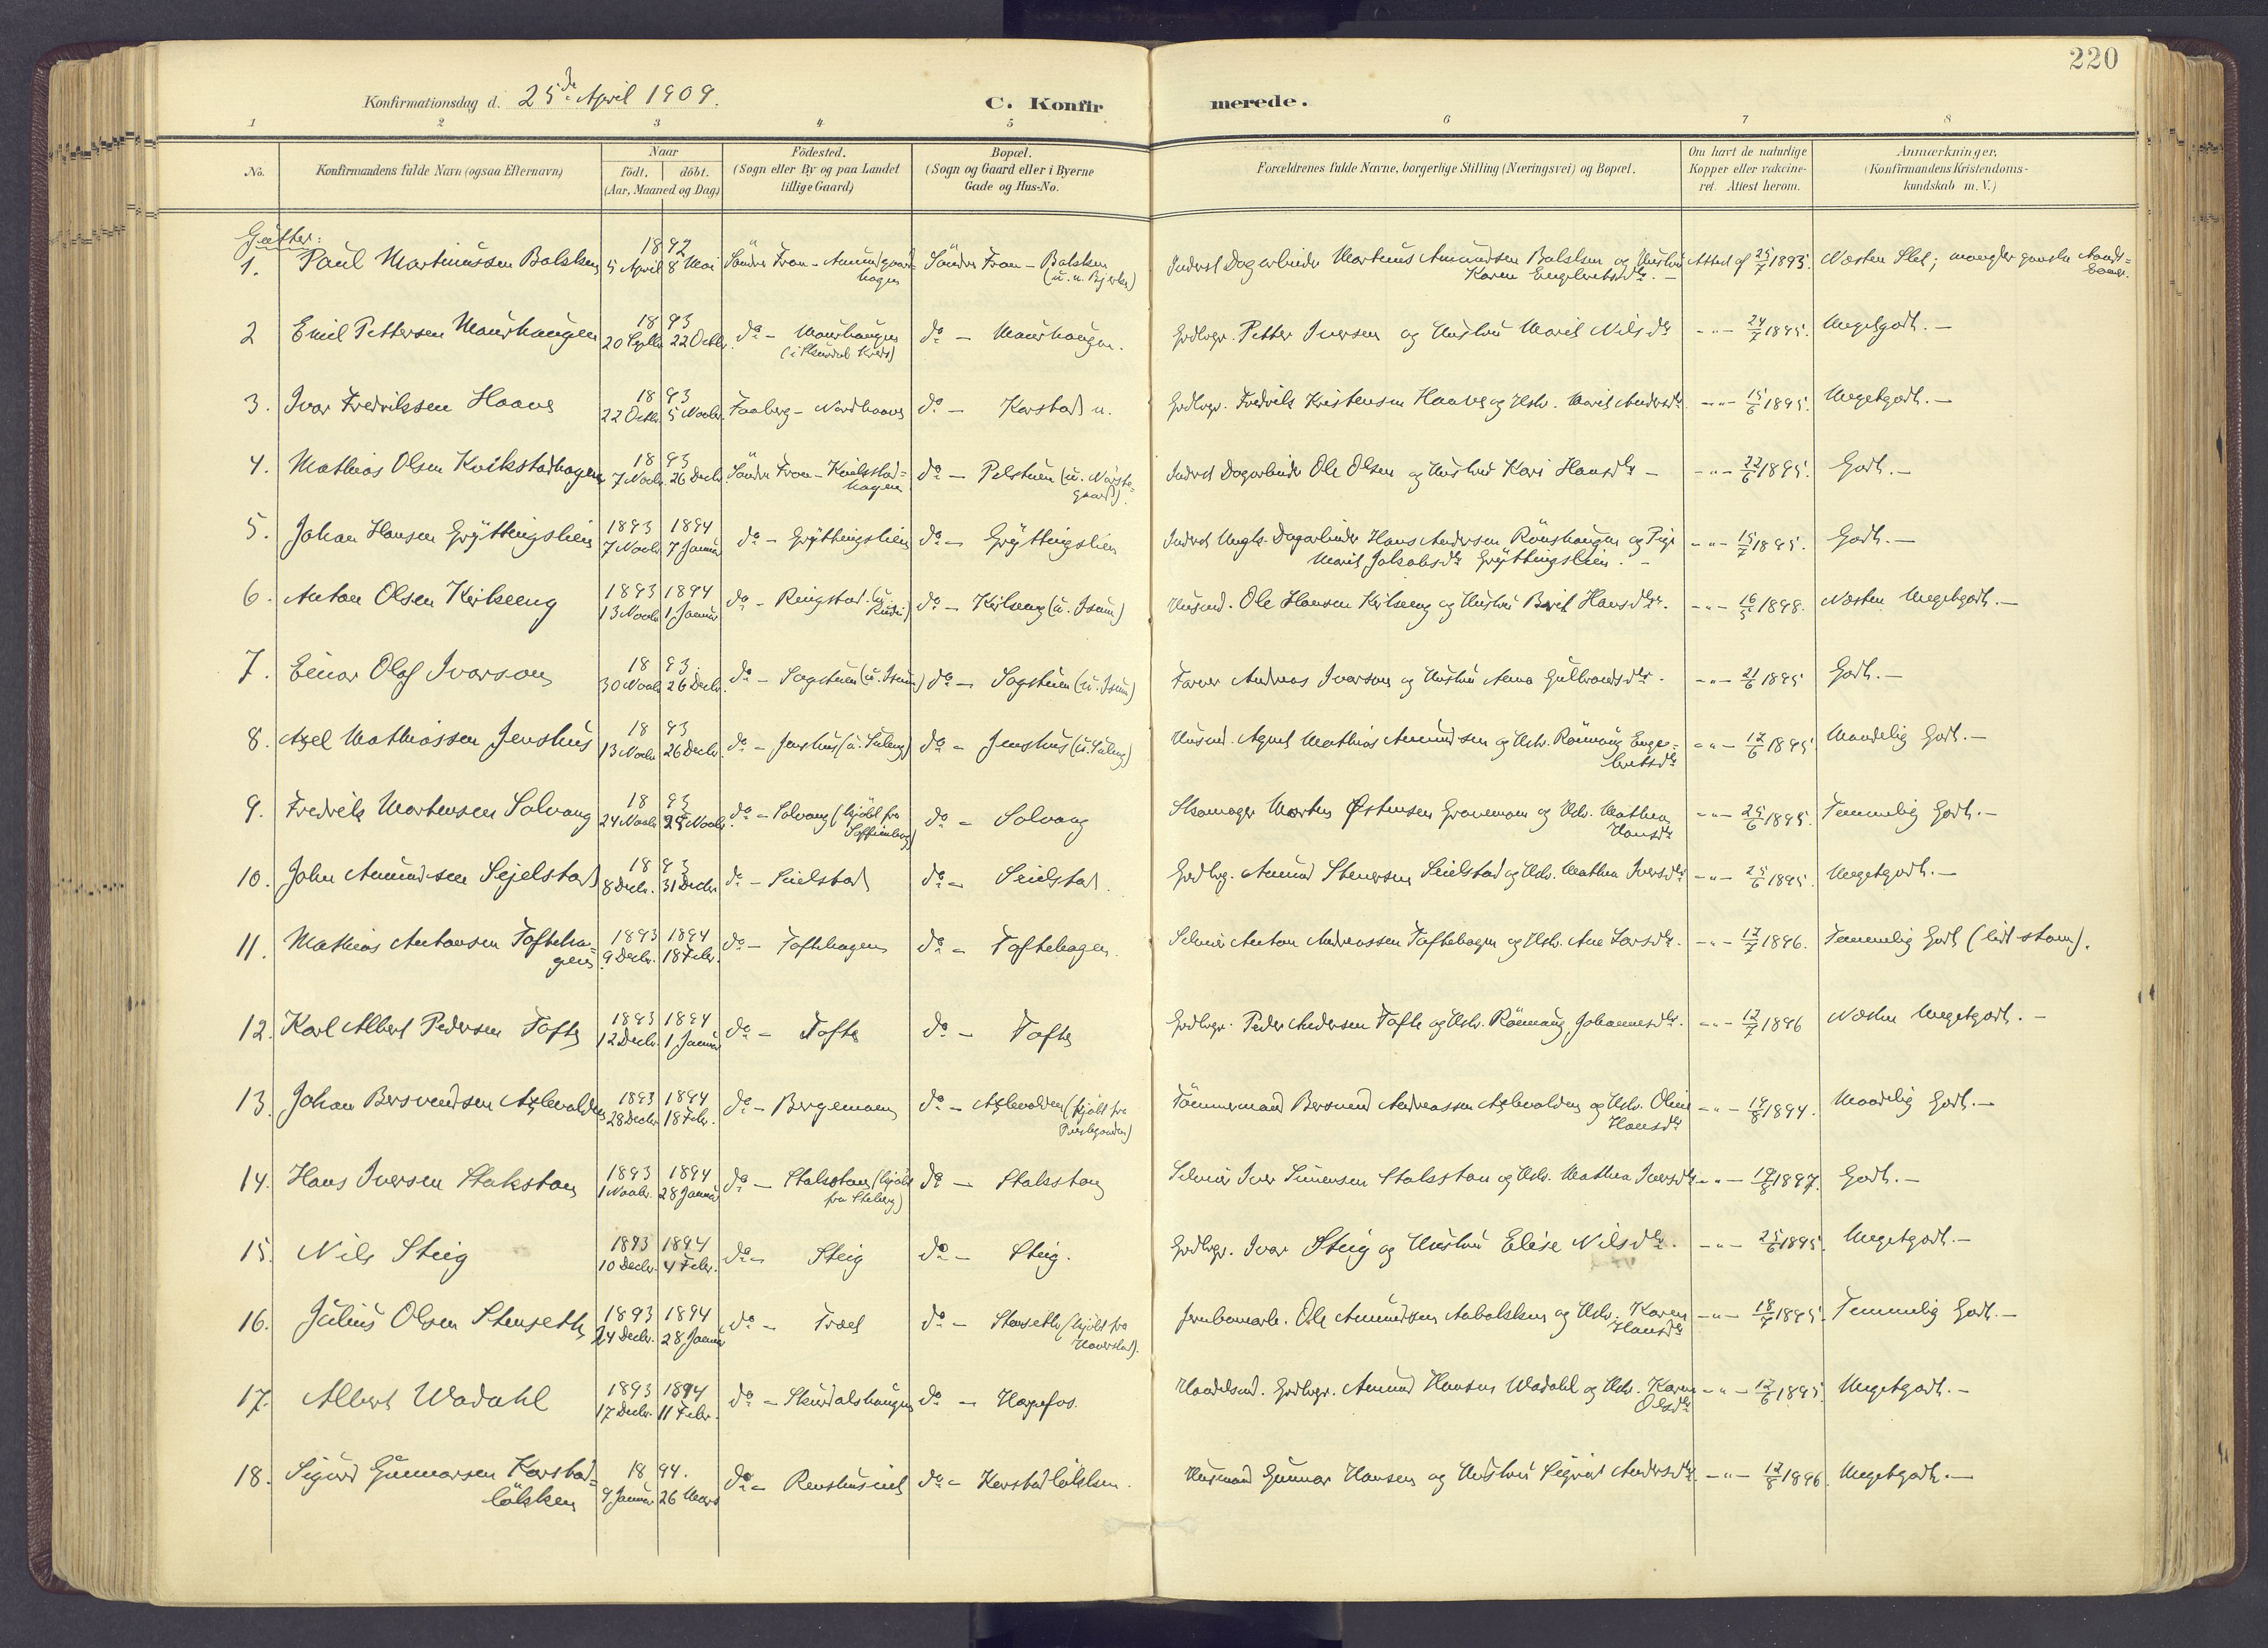 220
Konfirmationsdag d. 25de April 1909.
C. Konfirmerede.
1 2 3 4 5 6 7 8
No. Konfirmandens fulde Navn (ogsaa Efternavn) Naar födt. döbt. (Aar, Maaned og Dag) Födested. (Sogn eller By og paa Landet tillige Gaard) Bopæl. (Sogn og Gaard eller i Byerne Gade og Hus-No. Forældrenes fulde Navne, borgerlige Stilling (Næringsvei) og Bopæl. Om havt de naturlige Kopper eller vakcineret. Attest herom. Anmærkninger, (Konfirmandens Kristendomskundskab m. V.)
Gutter:
1. Paul Martinussen Bakken 1892 5 April 8 Mai Söndre Fron - Amundgaardhagen Söndre Fron - Bakken (u. n. Bjerke) Inderst Dagarbeider Martinus Amundsen Bakken og Hustru Karen Engebretsdtr. - Attest af 25/7 1893. Næsten Slet; mangler ganske
2 Emil Pettersen Maurhaugen 1893 20 Septbr. 22 Octbr. do - Maurhaugen (i Skurdal Kreds) do - Maurhaugen. Grdbrgr. Petter Iversen og Hustru Marit Nilsdtr - " - 24/7 1895. Megetgodt. -
3. Ivar Fredriksen Haave 1893 22 Octbr. 5 Novbr. Faaberg - Nordhaave do - Korstad n. Grdbrgr. Fredrik Kristensen Haave og Hstr. Marit Andersdtr. - " - 15/6 1895. Megetgodt. -
4. Mathias Olsen Kvikstadhagen 1893 7 Novbr. 26 Decbr. Söndre Fron - Kvikstadhagen do - Pelstuen (u. Nørstegaard). Inderst Dagarbeider Ole Olsen og Hustru Kari Hansdtr - - " - 22/6 1895. Godt. -
5. Johan Hansen Gryttingslien 1893 1894 7 Novbr. 7 Januar do - Gryttingslien do - Gryttingslien Inderst Ungk. Dagarbeider Hans Andersen Rönshaugen og Pige Marit Jakobsdtr Gryttingslien. - - " - 15/7 1895. Godt. -
6. Anton Olsen Kirkeeng 1893 1894 13 Novbr. 1 Januar do - Ringstad. do - Kirkeeng (u. Isum) Husmd. Ole Hansen Kirkeeng og Hustru Berit Hansdtr. - " - 16/5 1898. Næsten Megetgodt. -
7. Einar Olaf Ivarson 1893. 30 Novbr. 26 Decbr. do - Sagstuen (u. Isum) do - Sagstuen (u. Isum) Farver Andreas Ivarson og Hustru Anna Gulbrandsdtr. - " - 21/6 1895 Godt. -
8. Axel Mathiassen Jenshus 1893 13 Novbr. 26 Decbr. do - Jenshus (u. Suleng) do - Jenshus (u. Suleng) Husmd. Agent Mathias Amundsen og Hstr. Rönnaug Engebretsdtr - " - 12/6 1895 Maadelig Godt. -
9. Fredrik Martensen Solvang 1893 24 Novbr. 25 Novbr. do - Solvang (kjöbt fra do - Solvang Skomager Morten Østensen Granemoen og Hstr. Mathea Hansdtr - " - 25/6 1895. Temmelig Godt. -
10. John Amundsen Sejelstad 1893 8 Decbr. 31 Decbr. do - Seielstad do - Seielstad. Grdbrg. Amund Stenersen Seielstad og Hstr. Mathea Iversdtr - " - 25/6 1895. Megetgodt. -
11. Mathias Antonsen Toftehagen 1893 1894 9 Decbr. 18 Febr. do - Toftehagen do - Toftehagen. Selveier Anton Andreassen Toftehagen og Hstr. Ane Larsdtr. - " - 12/7 1896. Temmelig Godt (lidt stam).
12. Karl Albert Pedersen Tofte 1893 1894 12 Decbr. 1 Januar do - Tofte do - Tofte Grdbrgr. Peder Andersen Tofte og Hstr. Rönnaug Johannesdtr. - " - 12/7 1896 Næsten Megetgodt. -
13. Johan Bersvendsen Axlevolden 1893 1894 28 Decbr. 18 Febr. do - Bergemoen do - Axlevolden (kjöbt fra Tömmermand Bersvend Andreassen Axlevolden og Hstr. Oline Hansdtr - " - 14/8 1894. Maadelig Godt. -
14. Hans Iversen Stakston 1893 1894 1 Novbr. 28 Januar do - Stakston (kjöbt fra Steberg) do - Stakston Selveier Iver Simensen Stakston og Hstr. Mathea Iversdtr - " - 19/8 1897. Godt. -
15. Nils Steig 1893 1894 10 Decbr. 4 Febr. do - Steig do - Steig. Grdbrgr. Ivar Steig og Hustru Elise Nilsdtr. - " - 25/6 1895. Megetgodt. -
16. Julius Olsen Stenseth 1893 1894 24 Decbr. 28 Januar do - Troet do - Stenseth (kjöbt fra Haverstad). Jernbanearb. Ole Amundsen Aabakken og Hstr. Karen Hansdtr - " - 18/7 1895. Temmelig Godt. -
17. Albert Wadahl 1893 1894 17 Decbr. 11 Febr. do - Skurdalshaugen do - Harpefos. Handelsmd. Grdbrgr. Amund Hansen Wadahl og Hstr. Karen Olsdtr - " - 12/6 1895. Megetgodt. -
18. Sigurd Gunnarsen Korstadlökken 1894. 9 Januar 26 Mars do - Renshuseiet do - Korstadlökken. Husmand Gunnar Hansen og Hustru Sigrid Andersdtr. - " - 12/8 1896. Megetgodt. -